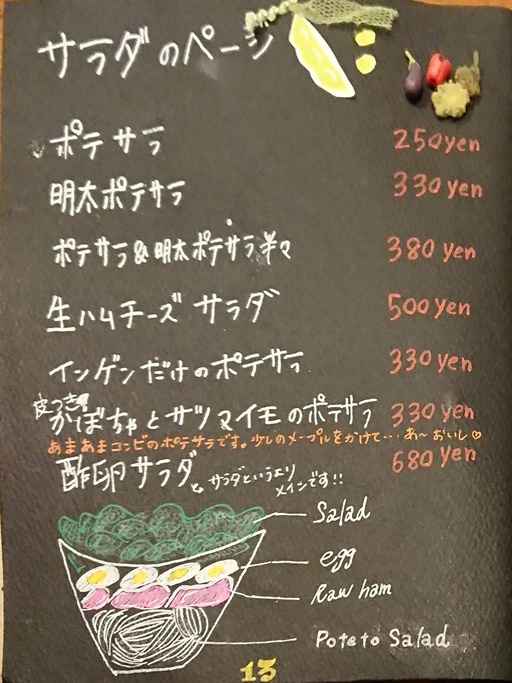 サラダのページ
ポテサラ 250yen
明太ポテサラ 330yen
ポテサラ&明太ポテサラ半々 380yen
生ハムチーズサラダ 500yen
インゲンだけのポテサラ 330yen
皮つき!
かぼちゃとサツマイモのポテサラ 330yen
あまあまコンビのポテサラです。少しのメープルをかけて…あ〜おいし♡
酢卵サラダ 680yen
サラダというより
メインです!!
Salad
egg
Raw ham
Poteto Salad
13